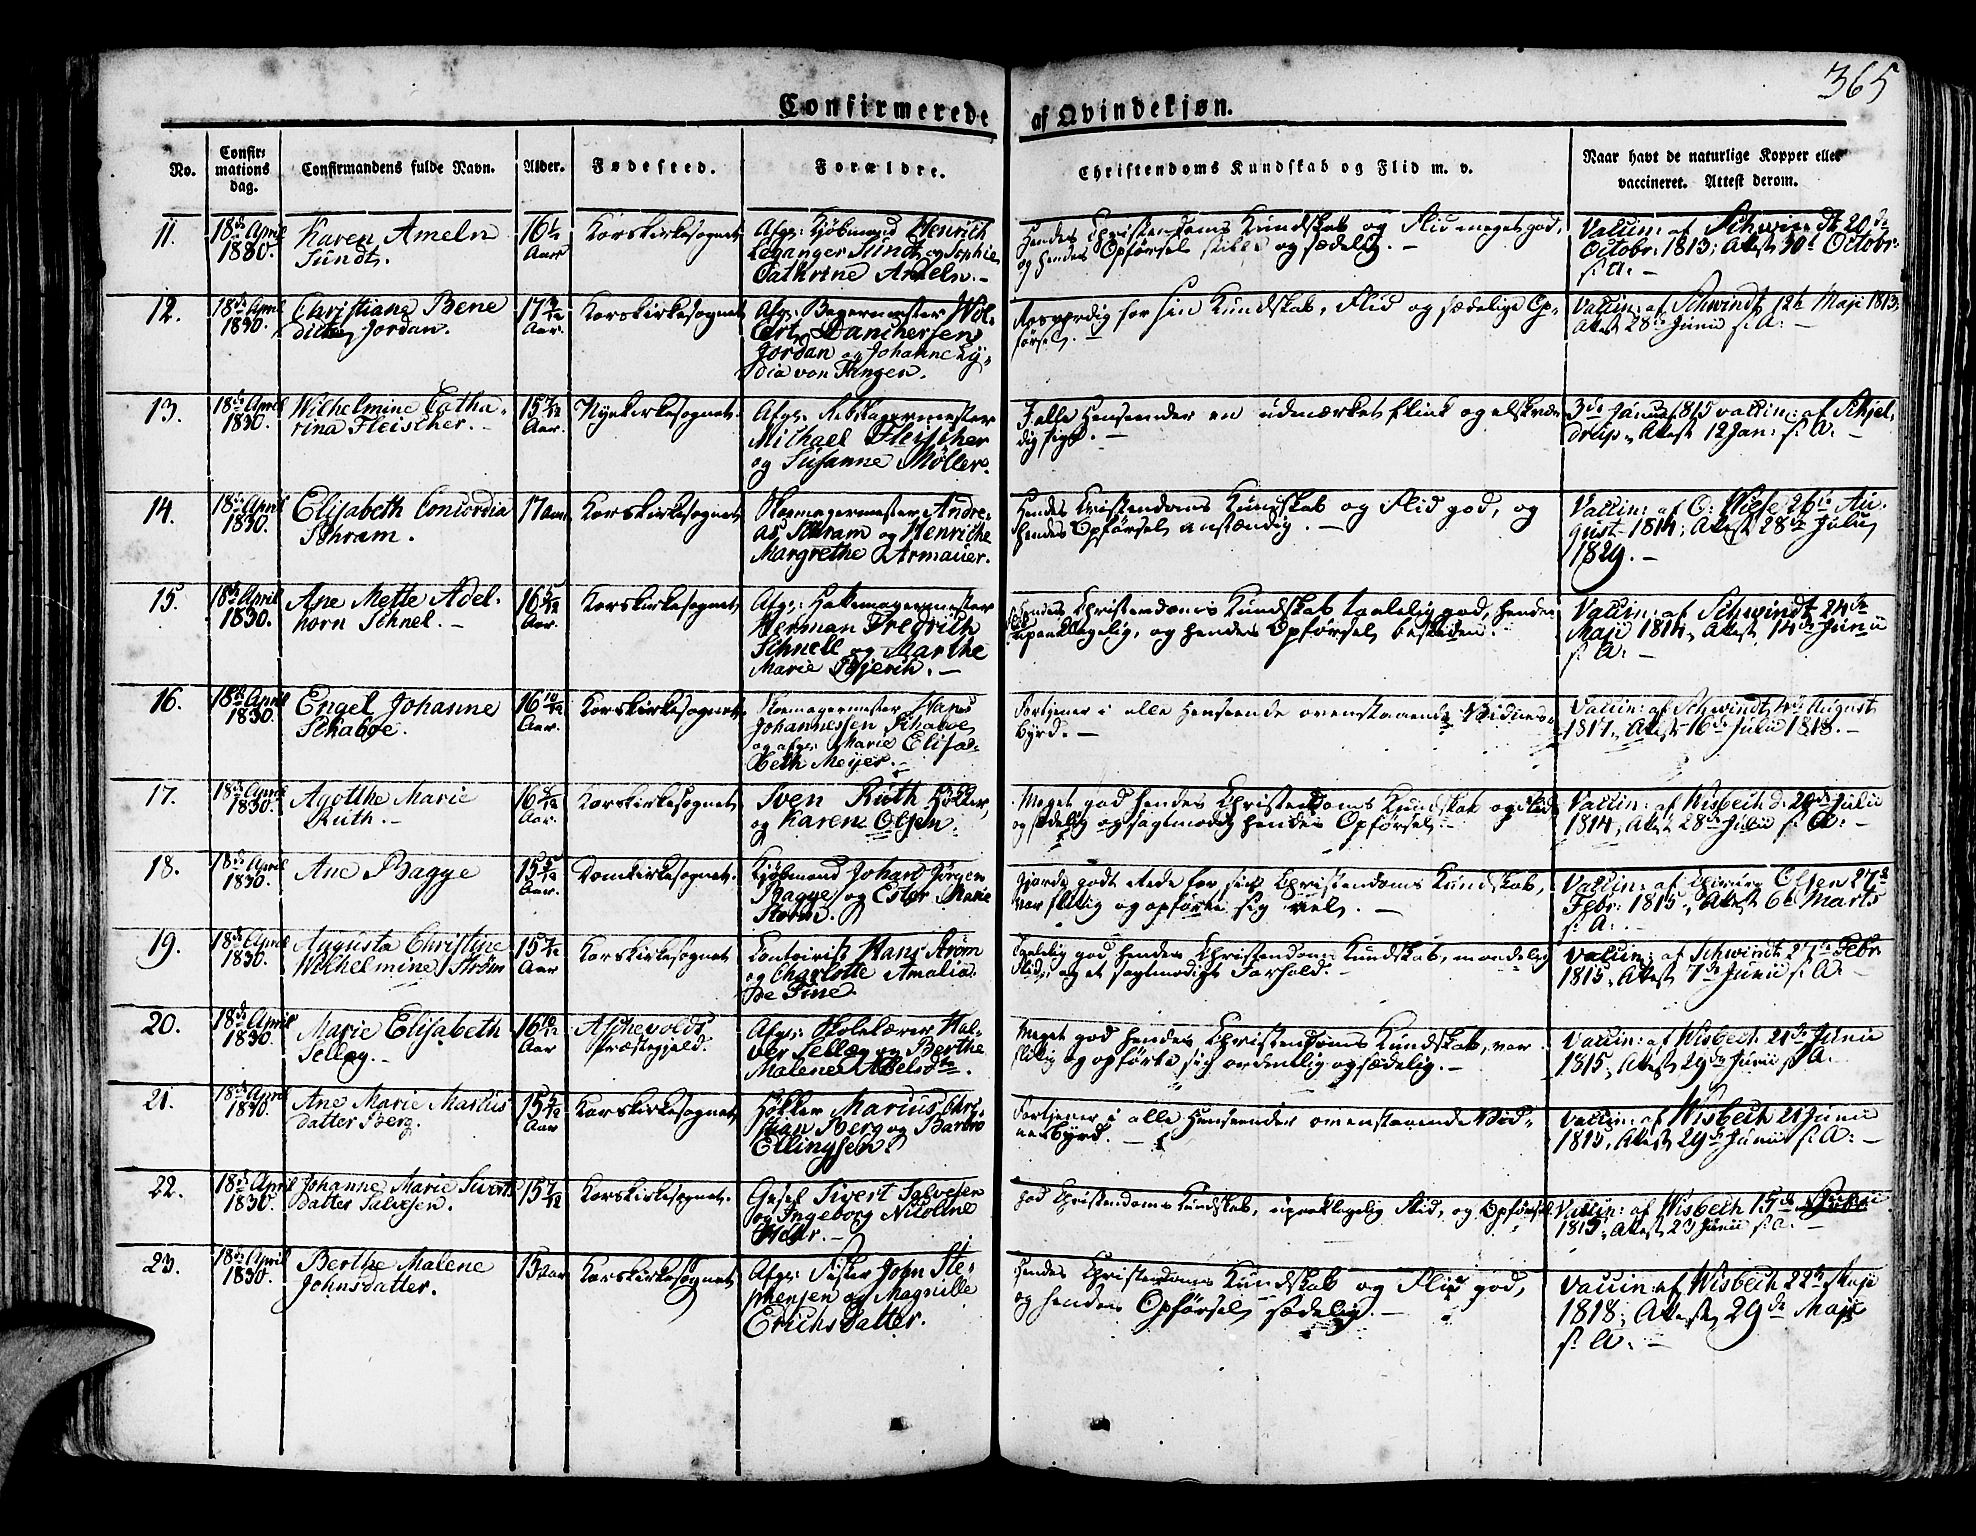 365
Confirmerede af Qvindekjøn.
No.
Confir-
mations
dag.
Confirmandens fulde Navn.
Alder.
Fødested.
Forældre.
Christendoms Kundskab og Flid m. v.
Naar havt de naturlige Kopper eller
vaccineret. Attest derom.
11.
18de April
1830.
Karen Ameln
Sundt.
16 1/2
Aar
Korskirkesognet
Afg: Kjøbmand Henrich
Leganger Sundt og Sophie
Cathrine Ameln.
Hendes Christendoms Kundskab og Flid meget god,
og hendes Opførsel stille og sædelig.
Vaccin: af Schwindt 20de
Octobr: 1813; Attest 30t Octobr:
s: A:
12.
18de April
1830.
Christiane Bene
dicte Jordan.
17
Aar.
Korskirkesognet
Afg: Bagermester Wol-
Danchertsen
Jordan og Johanne Ly-
dia von Tangen.
Roesværdig for sin Kundskab, Flid og sædelige Op-
førsel.
Vaccin: af Schwindt 12t Maji 1813;
Attest 28de Junii s: A:
13.
18de April
1830.
Wilhelmine Catha-
rina Fleischer.
15
Aar.
Nyekirkesognet
Afg:
Michael Fleischer
og Susanne Møller.
I alle Henseender en udmærket flink og elskvær
dig Pige.
3de Januar 1815 vaccin: af Schjel-
drup, Attest 12 Jan: s: A:
14.
18de April
1830.
Elisabeth Concordia
Schram.
17 Aar
Korskirkesognet
Skomagermester Andre-
as Schram og Henriche
Margrethe Armauer.
Hendes Christendoms Kundskab og Flid god, og
hendes Opførsel anstændig.
Vaccin: af O: Wiese 26de Au-
gust 1814; Attest 28de Julii
1829.
15.
18de April
1830.
Ane Mette Adel-
horn Schnel.
16 5/12
Aar.
Korskirkesognet
Afg:
Herman Fredrich
Schnell og Marthe
Marie
Hendes Christendoms Kundskab taalelig god, hendes
Flid upaaklagelig, og hendes Opførsel beskeden.
Vaccin: af Schwindt 24de
Maji 1814, Attest 14de Junii
s: A:
16.
18de April
1830.
Engel Johanne
Schaboe.
16 10/12
Aar.
Korskirkesognet
Skomagermester Hans
Johannessen Schaboe
og afg: Marie Elisa-
beth Meyer.
Fortjener i alle Henseende ovenstaaende Vidnes-
byrd.
Vaccin: af Schwindt 4de August
1817, Attest 16de Julii 1818.
17.
18de April
1830.
Agotthe Marie
Ruth.
16
Aar.
Korskirkesognet
Sven Ruth Høker,
og Karen Olsen.
Meget god hendes Christendoms Kundskab og Flid
og sædelig og sagtmodig hendes Opførsel.
Vaccin: af Wisbech d: 20de Julii
1814, Attest 28de Julii s: A:
18.
18de April
1830.
Ane Bagge
15
Aar.
Domkirkesognet.
Kjøbmand Johan Jørgen
Bagge og Ester Marie
Storm.
Gjorde godt Rede for sin Christendoms Kundskab,
var flittig og opførte sig vel.
Vaccin: af Chirurg Olsen 27de
Febr: 1815, Attest 6t Marts
s: A:
19.
18de April
1830.
Augusta Christine
Wilhelmine Strøm
15
Aar
Korskirkesognet
Contoirist Hans Strøm
og Charlotte Amalia
De Fine.
Taalelig god hendes Christendoms Kundskab, maadelig
Flid, og et sagtmodigt Forhold.
Vaccin: af Schwindt 27de Febr
1815, Attest 7de Junii s: A:
20.
18de April
1830.
Marie Elisabeth
Selleg.
16 10/12
Aar
Aschevolds
Præstegjeld.
Afg: Skolelærer Hal-
ver Selleg og Berthe
Malene
Meget god hendes Christendoms Kundskab, var
flittig og opførte sig ordentlig og sædelig.
Vaccin: af Wisbech 21de Junii
1815, Attest 29de Junii s: A:
21.
18de April
1830.
Ane Marie Marius
datter Berg.
15
Aar
Korskirkesognet
Høkker Marius Chri-
stian Berg og Barbro
Ellingsen
Fortjener i alle Henseender ovenstaaende Vid-
nesbyrd.
Vaccin: af Wisbech 21 Junii
1815, Attest 29de Junii s: A:
22.
18de April
1830.
Johanne Marie Siverts
datter Salvesen.
15 7/12
Korskirkesognet.
Sivert Salvesen
og Ingeborg Nicoline
God Christendoms Kundskab, upaaklagelig Flid, og Opførsel.
Vaccin: af Wisbech 15de Junii
1815, Attest 23 Junii s: A:
23.
18de April
1830.
Berthe Malene
Johnsdatter.
15 Aar
Korskirkesognet
Afg: Fisker John Ste-
phensen og Magnille
Erichsdatter.
Hendes Christendoms Kundskab og Flid god,
og hendes Opførsel sædelig.
Vaccin: af Wisbech 22de Maji
1818, Attest 29de Maji
s: A: